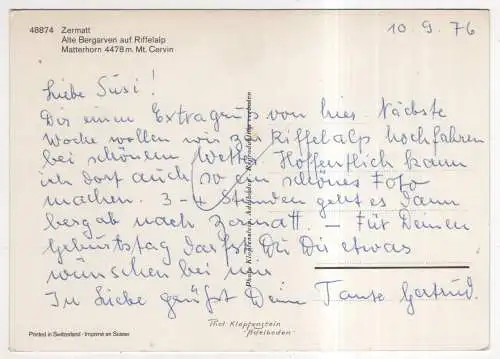 48874 Zermatt
Alte Bergarven auf Riffelalp
Matterhorn 4478 m. Mt. Cervin
10.9.76
Liebe Susi!
Dir einen Extragruss von hier Nächste
Woche wollen wir zur Riffelalp hochfahren
bei schönem Wetter. Hoffentlich kann
ich dort auch so ein schönes Foto
machen. 3-4 Stunden geht es dann
bergab nach Zermatt. – Für Deinen
Geburtstag darfst Du Dir etwas
wünschen bei mir
In Liebe grüßt Deine Tante Gertrud.
Photo Klopfenstein, Adelboden
Phot Klopfenstein
"Adelboden"
Printed in Switzerland - Imprimé en Suisse